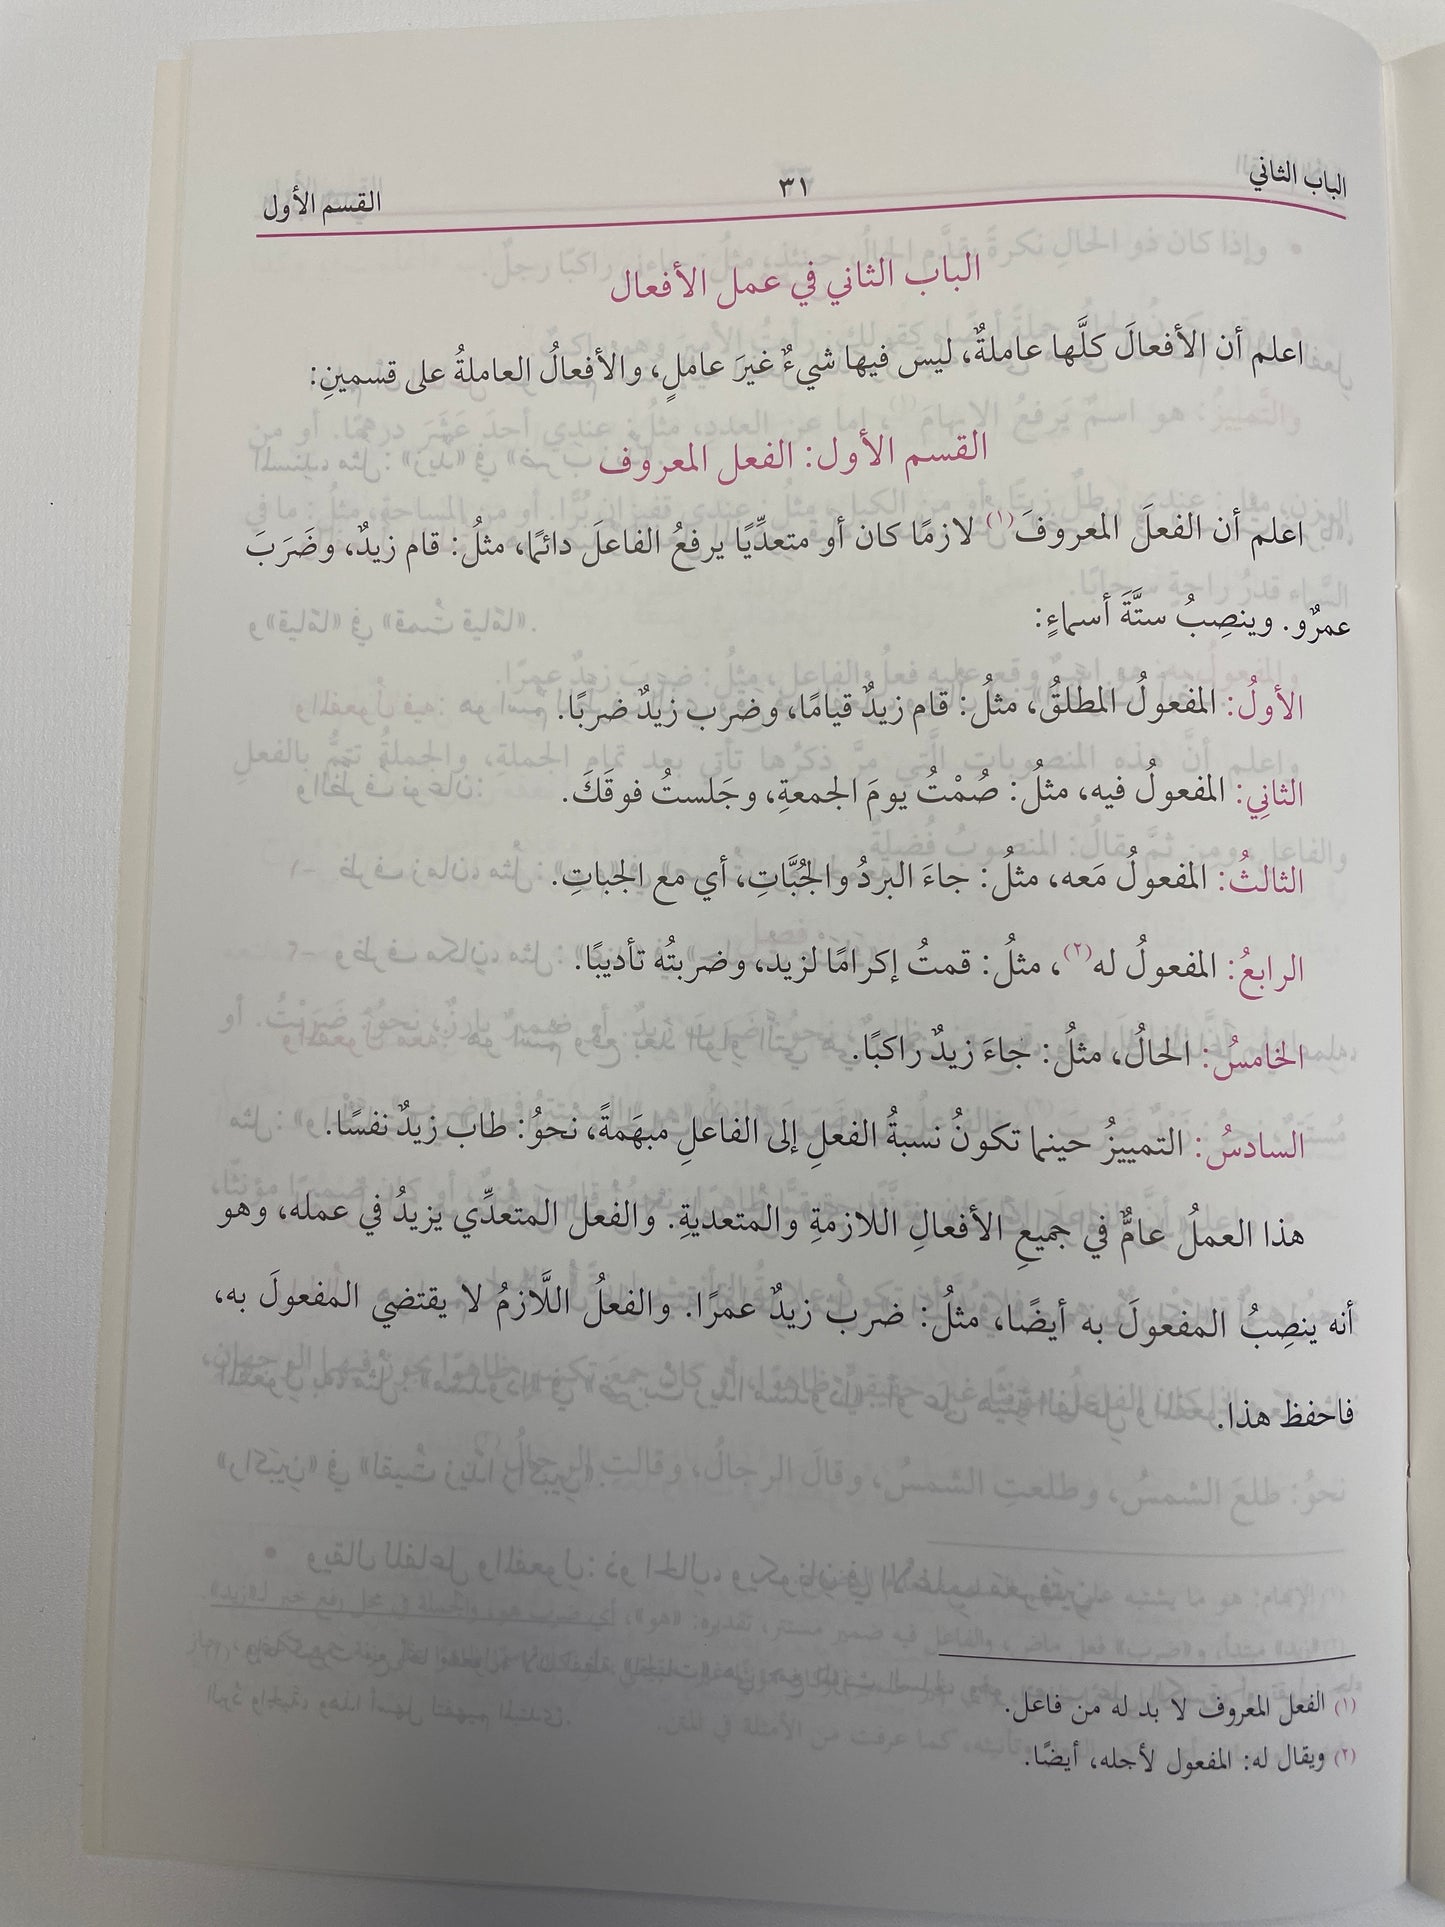 الباب الثاني ٣١ القسم الأول
الباب الثاني في عمل الأفعال
اعلم أن الأفعالَ كلَّها عاملةٌ، ليس فيها شيءٌ غيرَ عاملٍ، والأفعالُ العاملةُ على قسمينِ:
القسم الأول: الفعل المعروف
اعلم أن الفعلَ المعروفَ(١) لازمًا كان أو متعدِّيًا يرفعُ الفاعلَ دائمًا، مثلُ: قام زيدٌ، وضَرَبَ
عمرٌو. وينصِبُ ستَّةَ أسماءٍ:
الأولُ: المفعولُ المطلقُ، مثلُ: قام زيدٌ قيامًا، وضرب زيدٌ ضربًا.
الثانِي: المفعولُ فيه، مثلُ: صُمْتُ يومَ الجمعةِ، وجَلستُ فوقَكَ.
الثالثُ: المفعولُ مَعه، مثلُ: جاءَ البردُ والجُبَّاتِ، أي مع الجباتِ.
الرابعُ: المفعولُ له(٢)، مثلُ: قمتُ إكرامًا لزيد، وضربتُه تأديبًا.
الخامسُ: الحالُ، مثلُ: جاءَ زيدٌ راكبًا.
السادسُ: التمييزُ حينما تكونُ نسبةُ الفعلِ إلى الفاعلِ مبهَمةً، نحوُ: طاب زيدٌ نفسًا.
هذا العملُ عامٌّ في جميعِ الأفعالِ اللازمةِ والمتعديةِ. والفعل المتعدِّي يزيدُ في عمله، وهو
أنه ينصِبُ المفعولَ به أيضًا، مثلُ: ضرب زيدٌ عمرًا. والفعلُ اللَّازمُ لا يقتضي المفعولَ به،
فاحفظ هذا.
(١) الفعل المعروف لا بد له من فاعل.
(٢) ويقال له: المفعول لأجله، أيضًا.